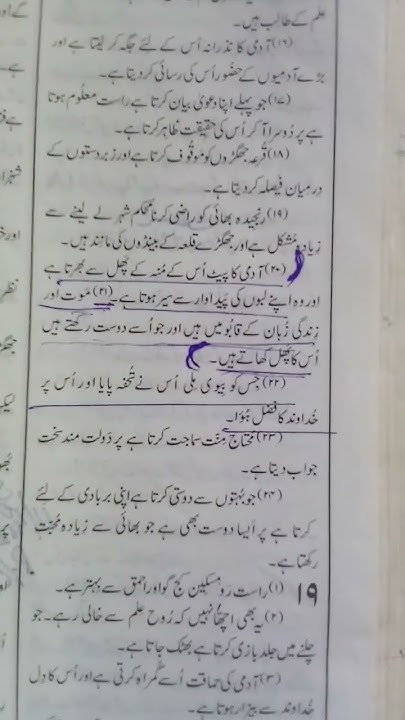 علم کے طالب ہیں۔
(۱۶) آدمی کا نذرانہ اُس کے لئے جگہ کر لیتا ہے اور
بڑے آدمیوں کے حضُور اُس کی رسائی کر دیتا ہے۔
(۱۷) جو پہلے اپنا دعویٰ بیان کرتا ہے راست معلُوم ہوتا
ہے پر دُوسرا آ کر اُس کی حقِیقت ظاہر کرتا ہے۔
(۱۸) قُرعہ جھگڑوں کو موقُوف کرتا ہے اور زبردستوں کے
درمیان فَیصلہ کر دیتا ہے۔
(۱۹) رنجیدہ بھائی کو راضی کرنا محکم شہر لے لینے سے
زیادہ مُشکل ہے اور جھگڑے قلعہ کے بینڈوں کی مانند ہیں۔
(۲۰) آدمی کا پیٹ اُس کے مُنہ کے پَھل سے بھرتا ہے
اور وہ اپنے لبوں کی پَیداوار سے سیر ہوتا ہے۔ (۲۱) مَوت اور
زِندگی زُبان کے قابُو میں ہیں اور جو اُسے دوست رکھتے ہیں
اُس کا پَھل کھاتے ہیں۔
(۲۲) جِس کو بیوی مِلی اُس نے تُحفہ پایا اور اُس پر
خُداوند کا فضل ہُؤا۔
(۲۳) مُحتاج مِنّت سماجت کرتا ہے پر دَولت مند سخت
جواب دیتا ہے۔
(۲۴) جو بُہتوں سے دوستی کرتا ہے اپنی بربادی کے لئے
کرتا ہے پر اَیسا دوست بھی ہے جو بھائی سے زیادہ مُحبّت
رکھتا ہے۔
۱۹ (۱) راست رَو مِسکین کج گو اور احمق سے بہتر ہے۔
(۲) یہ بھی اچھّا نہیں کہ رُوح علم سے خالی رہے۔ جو
چلنے میں جلد بازی کرتا ہے بھٹک جاتا ہے۔
(۳) آدمی کی حماقت اُسے گُمراہ کرتی ہے اور اُس کا دِل
خُداوند سے بیزار ہوتا ہے۔